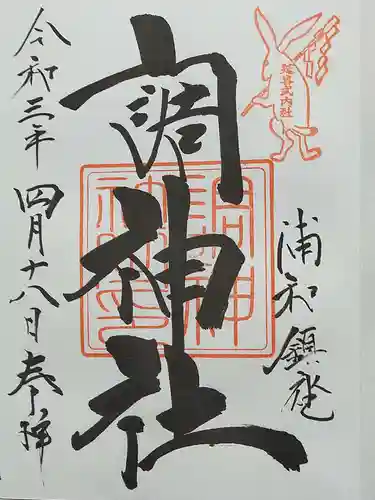 浦和鎮座
延喜式内社
調神社
令和三年四月十八日奉拝